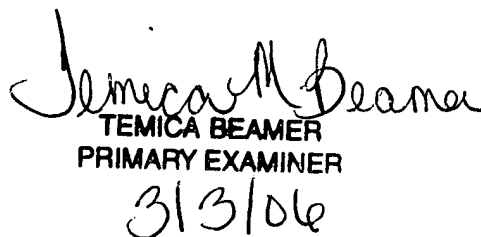 Temica M Beamer
TEMICA BEAMER
PRIMARY EXAMINER
3/3/06